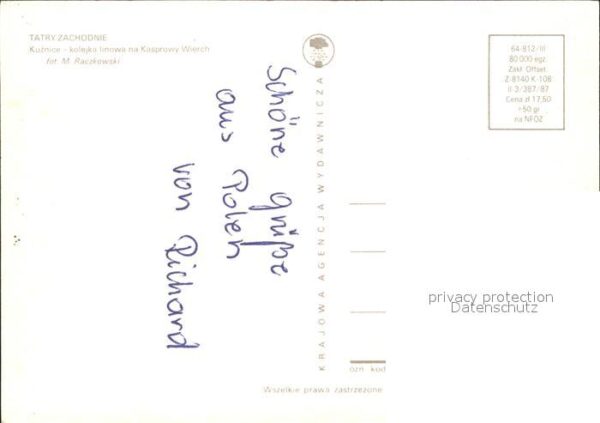 TATRY ZACHODNIE
Kuźnice - kolejka linowa na Kasprowy Wierch
fot. M. Raczkowski
Schöne grüße
aus Polen
von Richard
KRAJOWA AGENCJA WYDAWNICZA
64-812/III
80 000 egz.
Zakł. Offset.
Z-8140 K-108
II-3/387/87
Cena zł 17,50
+50 gr
na NFOZ
privacy protection
Datenschutz
ozn. kod
Wszelkie prawa zastrzeżone